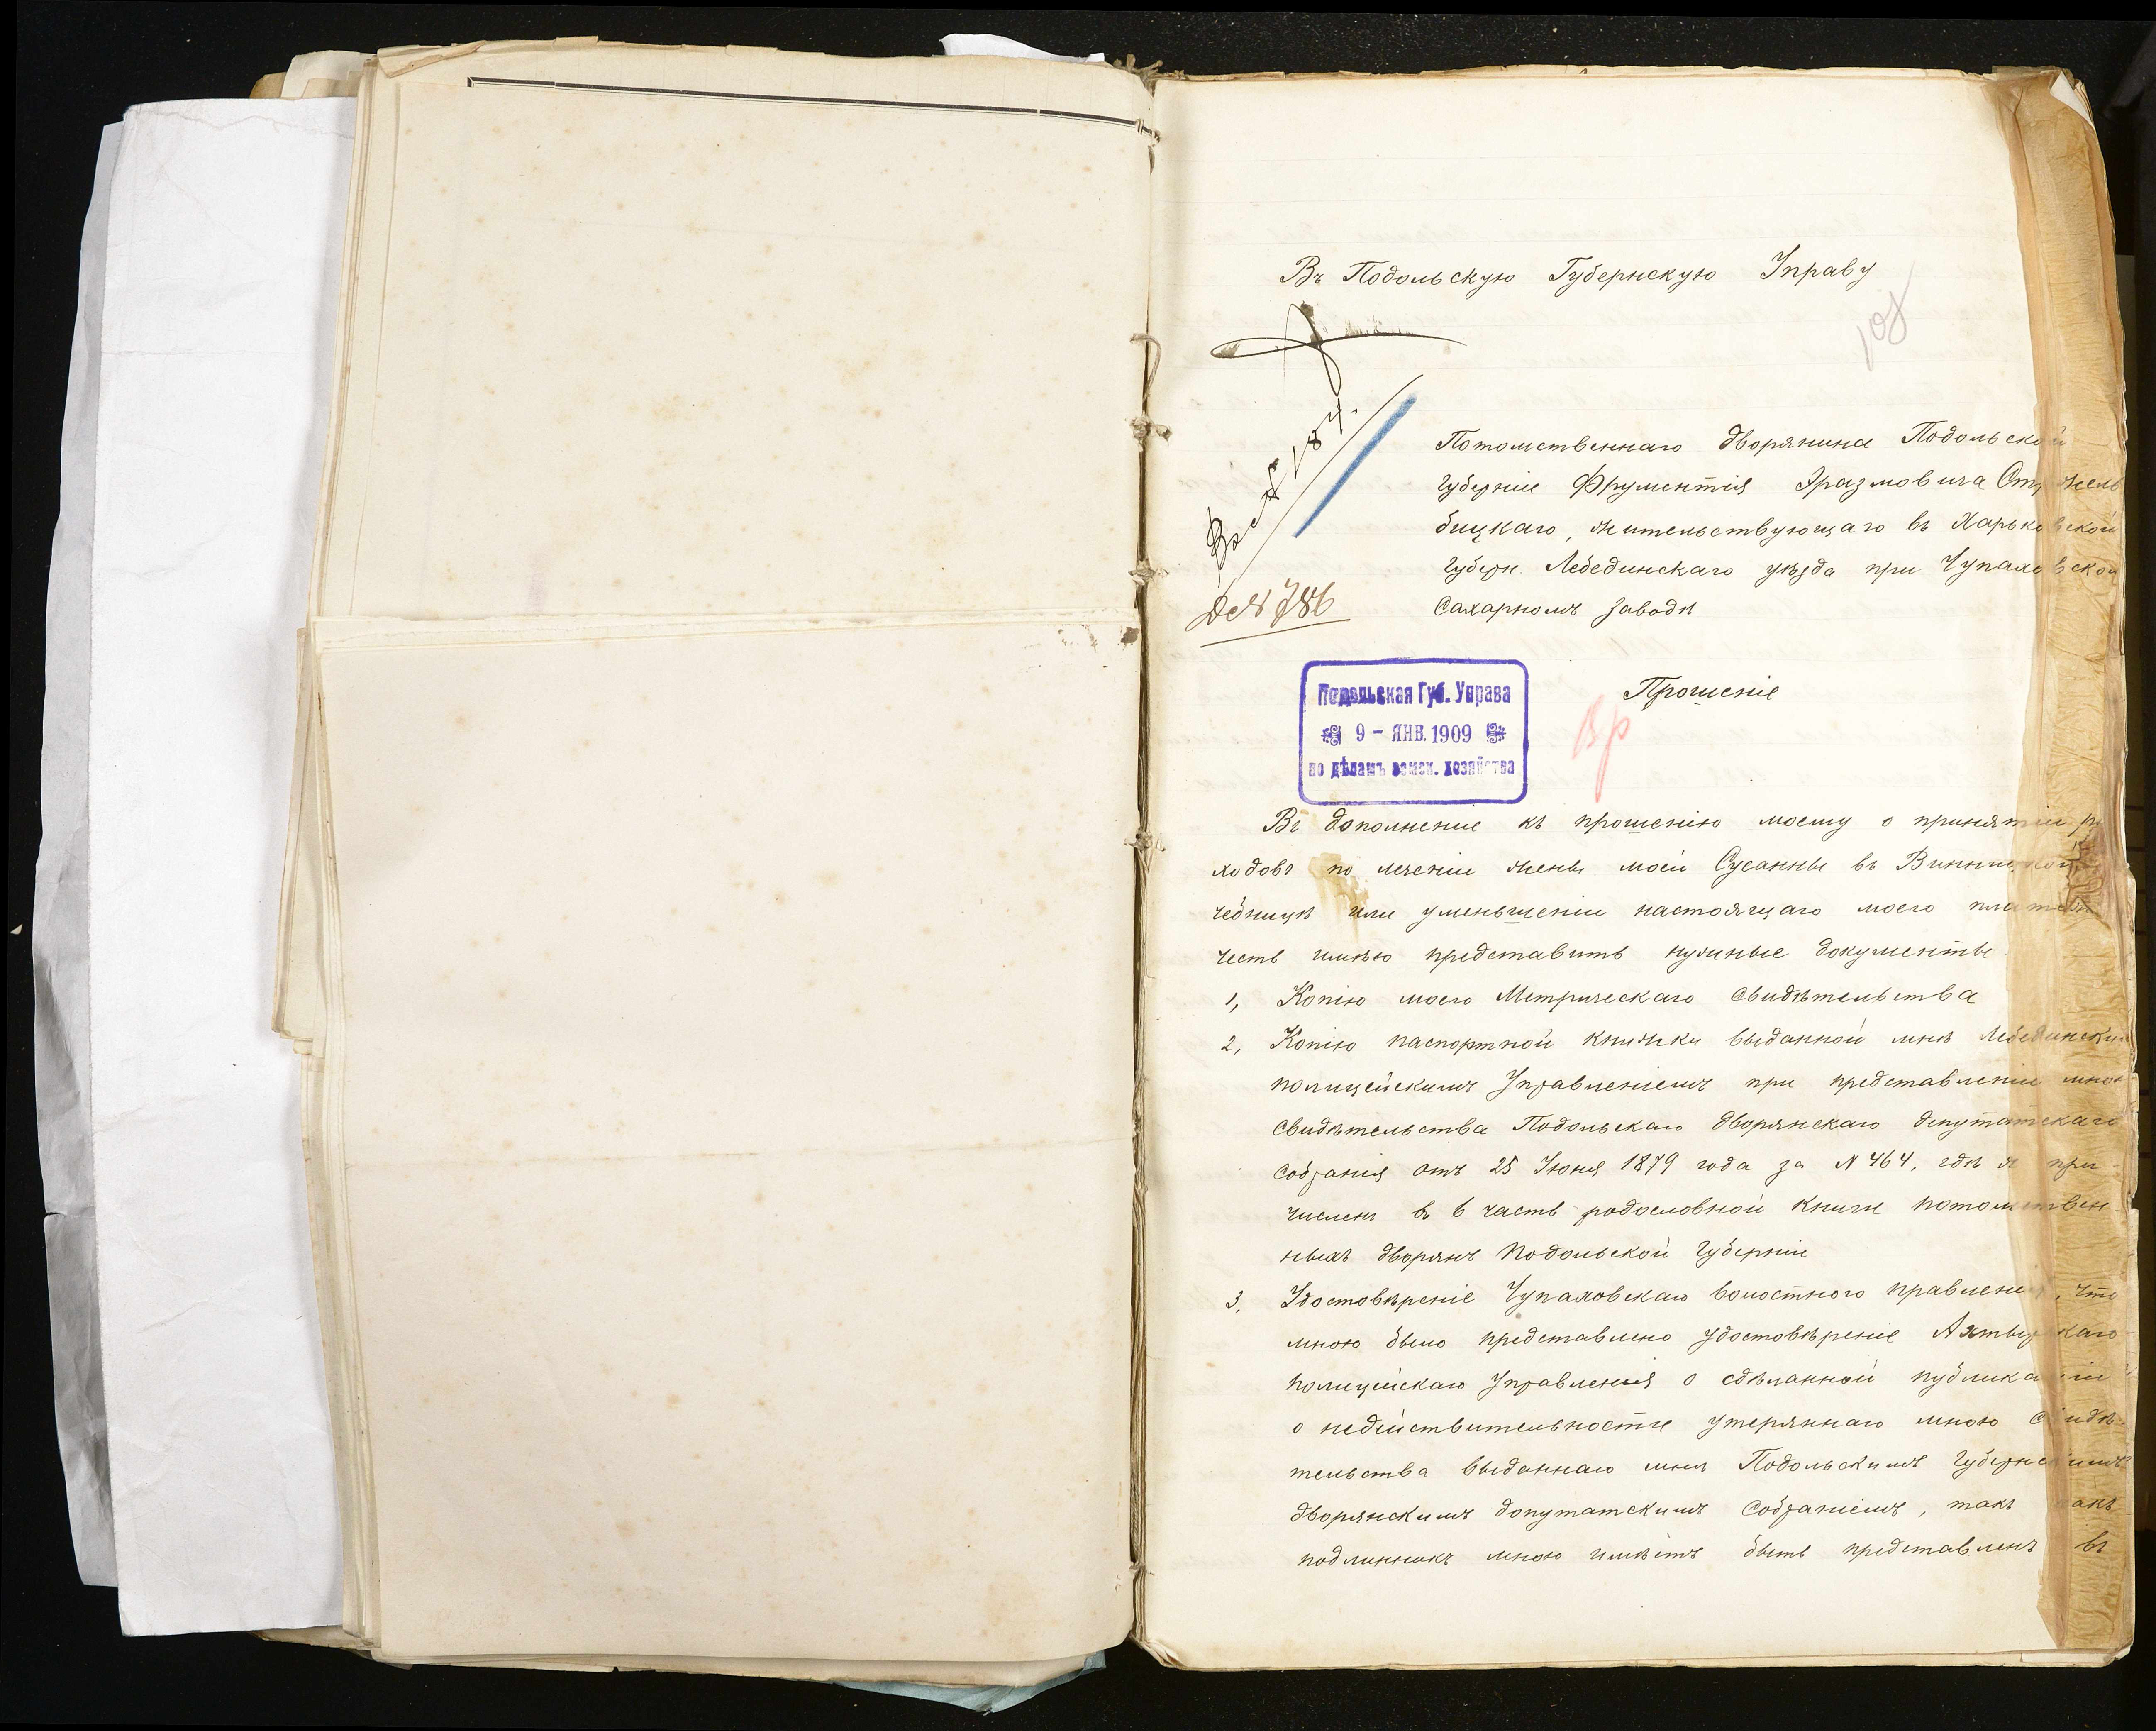 Въ Подольскую Губернскую Управу
108
Потомственнаго дворянина Подольской
губерніи Фрументія Эразмовича
бицкаго, жительствующаго въ Харьковской
Губерн. Лебединскаго уѣзда при Чупаховской
Сахарномъ Заводѣ
Прошеніе
Подольская Губ. Управа
9 - ЯНВ. 1909
по дѣламъ земск. хозяйства
Вр
Въ дополненіе къ прошенію моему о принятіи
ходовъ по леченіи жены моей Сусанны въ Винницкой
чебницѣ или уменьшеніи настоящаго моего
честь имѣю представить нужные документы
1, Копію моего Метрическаго свидѣтельства
2, Копію паспортной книжки выданной мнѣ Лебединским
полицейскимъ Управленіемъ при представленіи мною
свидѣтельства Подольскаго дворянскаго депутатскаго
собранія отъ 25 Іюня 1879 года за № 464, гдѣ я при-
численъ въ 6 часть родословной книги потомствен-
ныхъ дворянъ Подольской губерніи
3, Удостовѣреніе Чупаховскаго волостного правленія, что
мною было представлено удостовѣреніе Ахтырскаго
полицейскаго Управленія о сдѣланной публикаціи
о недѣйствительности утеряннаго мною свидѣ-
тельства выданнаго мнѣ Подольскимъ Губернскимъ
дворянскимъ допутатскимъ собраніемъ, такъ какъ
подлинникъ мною имѣетъ быть представленъ въ